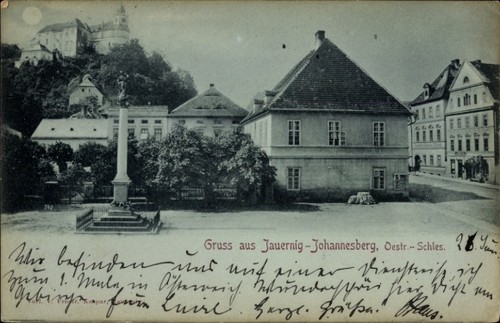 Gruss aus Jauernig-Johannesberg, Oestr.-Schles.
26 Juni
Wir befinden uns auf einer Dienstreise ich
zum 1. Male in Österreich. Wunderschön hier dicht am
Gebirge. Herzl. Grüße.
Hans.